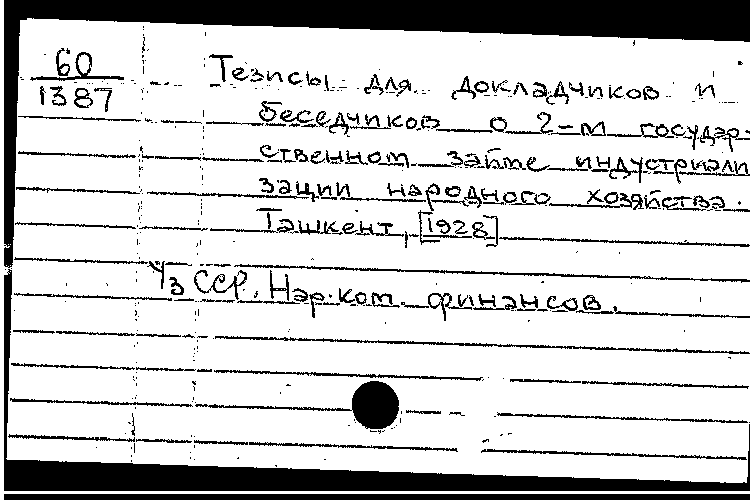 60
1387
Тезисы для докладчиков и
беседчиков о 2-м государ-
ственном займе индустриали
зации народного хозяйства.
Ташкент, [1928]
УзССР. Нар. ком. финансов.